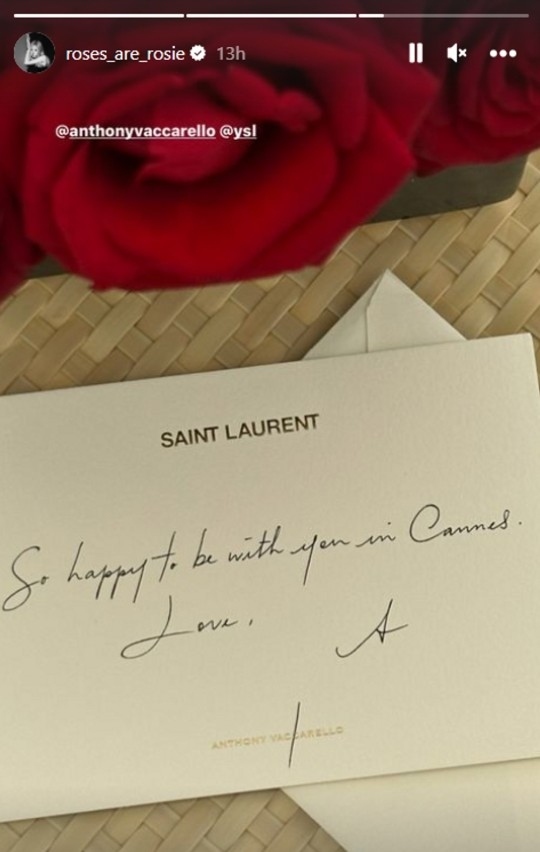 roses_are_rosie 13h
@anthonyvaccarello @ysl
SAINT LAURENT
So happy to be with you in Cannes.
Love, A
ANTHONY VACCARELLO